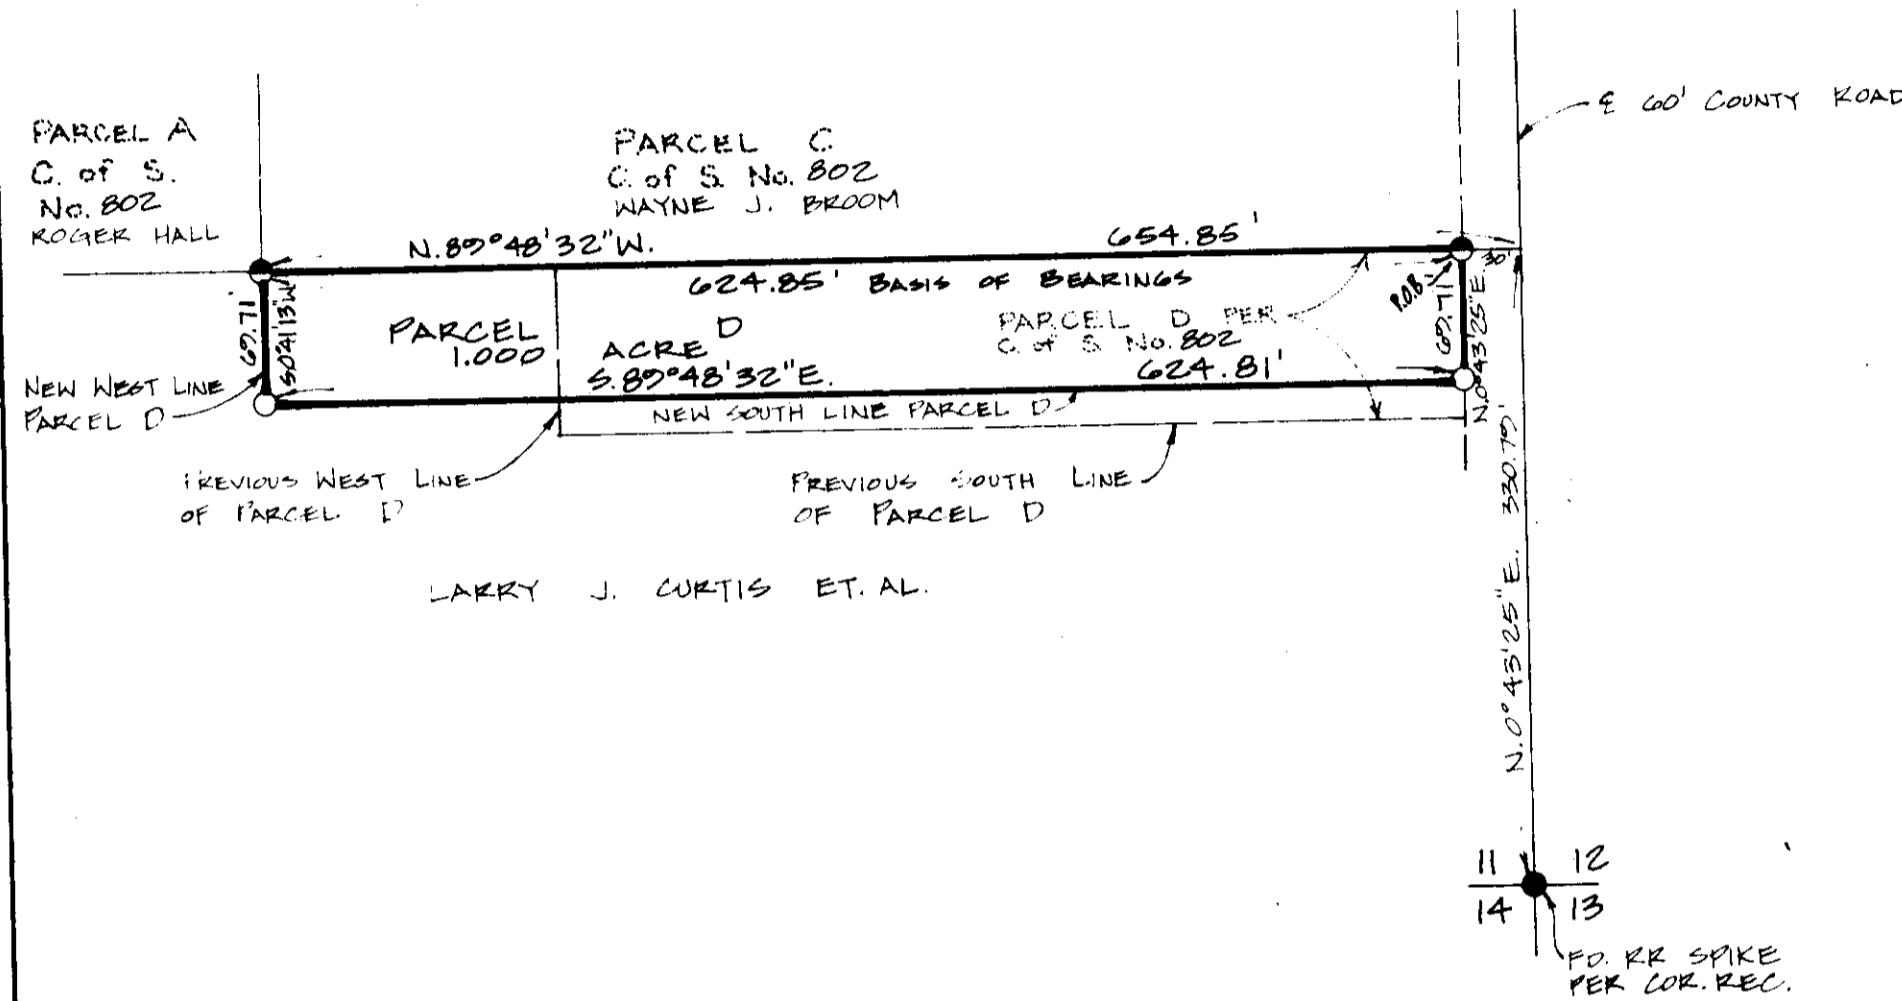 ℄ 60' COUNTY ROAD
PARCEL A
C. of S.
No. 802
ROGER HALL
PARCEL C
C. of S. No. 802
WAYNE J. BROOM
N.89°48'32"W. 654.85'
624.85' BASIS OF BEARINGS
30'
P.O.B.
69.71'
S.0°41'13"W.
PARCEL D
1.000 ACRE
PARCEL D PER
C. of S. No. 802
69.71'
N.0°43'25"E.
S.89°48'32"E. 624.81'
NEW WEST LINE
PARCEL D
NEW SOUTH LINE PARCEL D
PREVIOUS WEST LINE
OF PARCEL D
PREVIOUS SOUTH LINE
OF PARCEL D
LARRY J. CURTIS ET. AL.
N.0°43'25"E. 330.79'
11 12
14 13
FD. RR SPIKE
PER COR. REC.